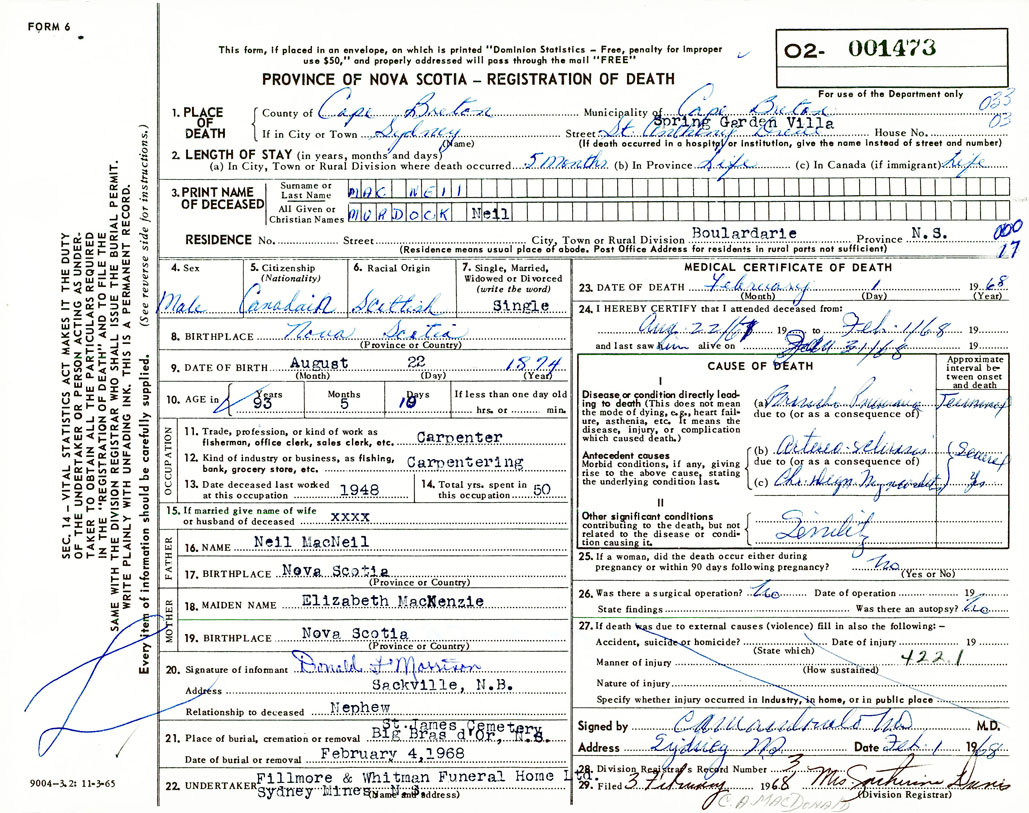 FORM 6
This form, if placed in an envelope, on which is printed "Dominion Statistics – Free, penalty for improper
use $50," and properly addressed will pass through the mail "FREE"
O2- 001473
PROVINCE OF NOVA SCOTIA – REGISTRATION OF DEATH
For use of the Department only
033
03
1. PLACE OF DEATH
County of Cape Breton Municipality of Cape Breton
Spring Garden Villa
If in City or Town Sydney Street St. Anthony Drive House No.
(Name) (If death occurred in a hospital or institution, give the name instead of street and number)
2. LENGTH OF STAY (in years, months and days)
(a) In City, Town or Rural Division where death occurred 5 Months (b) In Province Life (c) In Canada (if immigrant) Life
3. PRINT NAME OF DECEASED
Surname or Last Name MAC NEIL
All Given or Christian Names MURDOCK Neil
RESIDENCE No. Street City, Town or Rural Division Boulardarie Province N.S.
000
17
(Residence means usual place of abode. Post Office Address for residents in rural parts not sufficient)
4. Sex Male
5. Citizenship (Nationality) Canadain
6. Racial Origin Scottish
7. Single, Married, Widowed or Divorced (write the word) Single
8. BIRTHPLACE Nova Scotia
(Province or Country)
9. DATE OF BIRTH August 22 1874
(Month) (Day) (Year)
10. AGE in Years 93 Months 5 Days 10 If less than one day old hrs. or min.
OCCUPATION
11. Trade, profession, or kind of work as
fisherman, office clerk, sales clerk, etc. Carpenter
12. Kind of industry or business, as fishing,
bank, grocery store, etc. Carpentering
13. Date deceased last worked
at this occupation 1948
14. Total yrs. spent in
this occupation 50
15. If married give name of wife
or husband of deceased xxxx
FATHER
16. NAME Neil MacNeil
17. BIRTHPLACE Nova Scotia
(Province or Country)
MOTHER
18. MAIDEN NAME Elizabeth MacKenzie
19. BIRTHPLACE Nova Scotia
(Province or Country)
20. Signature of informant Donald F Morrison
Address Sackville, N.B.
Relationship to deceased Nephew
St. James Cemetery
21. Place of burial, cremation or removal Big Bras d'Or, N.S.
Date of burial or removal February 4, 1968
22. UNDERTAKER Fillmore & Whitman Funeral Home Ltd.
Sydney Mines, N.S.
(Name and address)
MEDICAL CERTIFICATE OF DEATH
23. DATE OF DEATH February 1 1968
(Month) (Day) (Year)
24. I HEREBY CERTIFY that I attended deceased from:
Aug. 22/67 19 to Feb. 1/68 19
and last saw him alive on 31/68 19
CAUSE OF DEATH
Approximate interval between onset and death
I
Disease or condition directly leading to death (This does not mean
the mode of dying, e.g., heart failure, asthenia, etc. It means the
disease, injury, or complication
which caused death.)
(a) Terminal
due to (or as a consequence of)
Antecedent causes
Morbid conditions, if any, giving
rise to the above cause, stating
the underlying condition last.
(b)
due to (or as a consequence of)
(c) Yrs
II
Other significant conditions
contributing to the death, but not
related to the disease or condition causing it.
Senility
25. If a woman, did the death occur either during
pregnancy or within 90 days following pregnancy? No
(Yes or No)
26. Was there a surgical operation? No Date of operation 19
State findings Was there an autopsy? No
27. If death was due to external causes (violence) fill in also the following: –
Accident, suicide or homicide? Date of injury 19
(State which)
Manner of injury 422.1
(How sustained)
Nature of injury
Specify whether injury occurred in Industry, in home, or in public place
Signed by M.D.
Address Sydney NS Date Feb. 1 1968
28. Division Registrar's Record Number 3
29. Filed 3 February 1968 Mrs
(Division Registrar)
C. A. MACDONALD
SEC. 14 – VITAL STATISTICS ACT MAKES IT THE DUTY
OF THE UNDERTAKER OR PERSON ACTING AS UNDER-
TAKER TO OBTAIN ALL THE PARTICULARS REQUIRED
IN THE "REGISTRATION OF DEATH" AND TO FILE THE
SAME WITH THE DIVISION REGISTRAR WHO SHALL ISSUE THE BURIAL PERMIT.
WRITE PLAINLY WITH UNFADING INK. THIS IS A PERMANENT RECORD.
Every item of information should be carefully supplied. (See reverse side for instructions.)
9004-3.2: 11-3-65